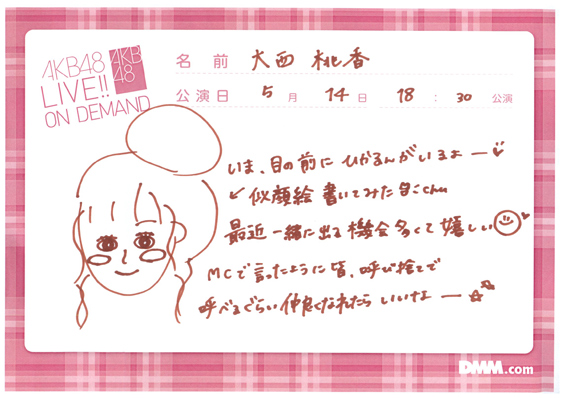 AKB48
LIVE!!
ON DEMAND
AKB
48
名前 大西 桃香
公演日 5月 14日 18:30 公演
いま、目の前に ひかるんがいるよー
↙ 似顔絵 書いてみた
最近 一緒に出る 機会多くて 嬉しい
MCで言ったように皆、呼び捨てで
呼べるぐらい仲良くなれたら いいなー
DMM.com